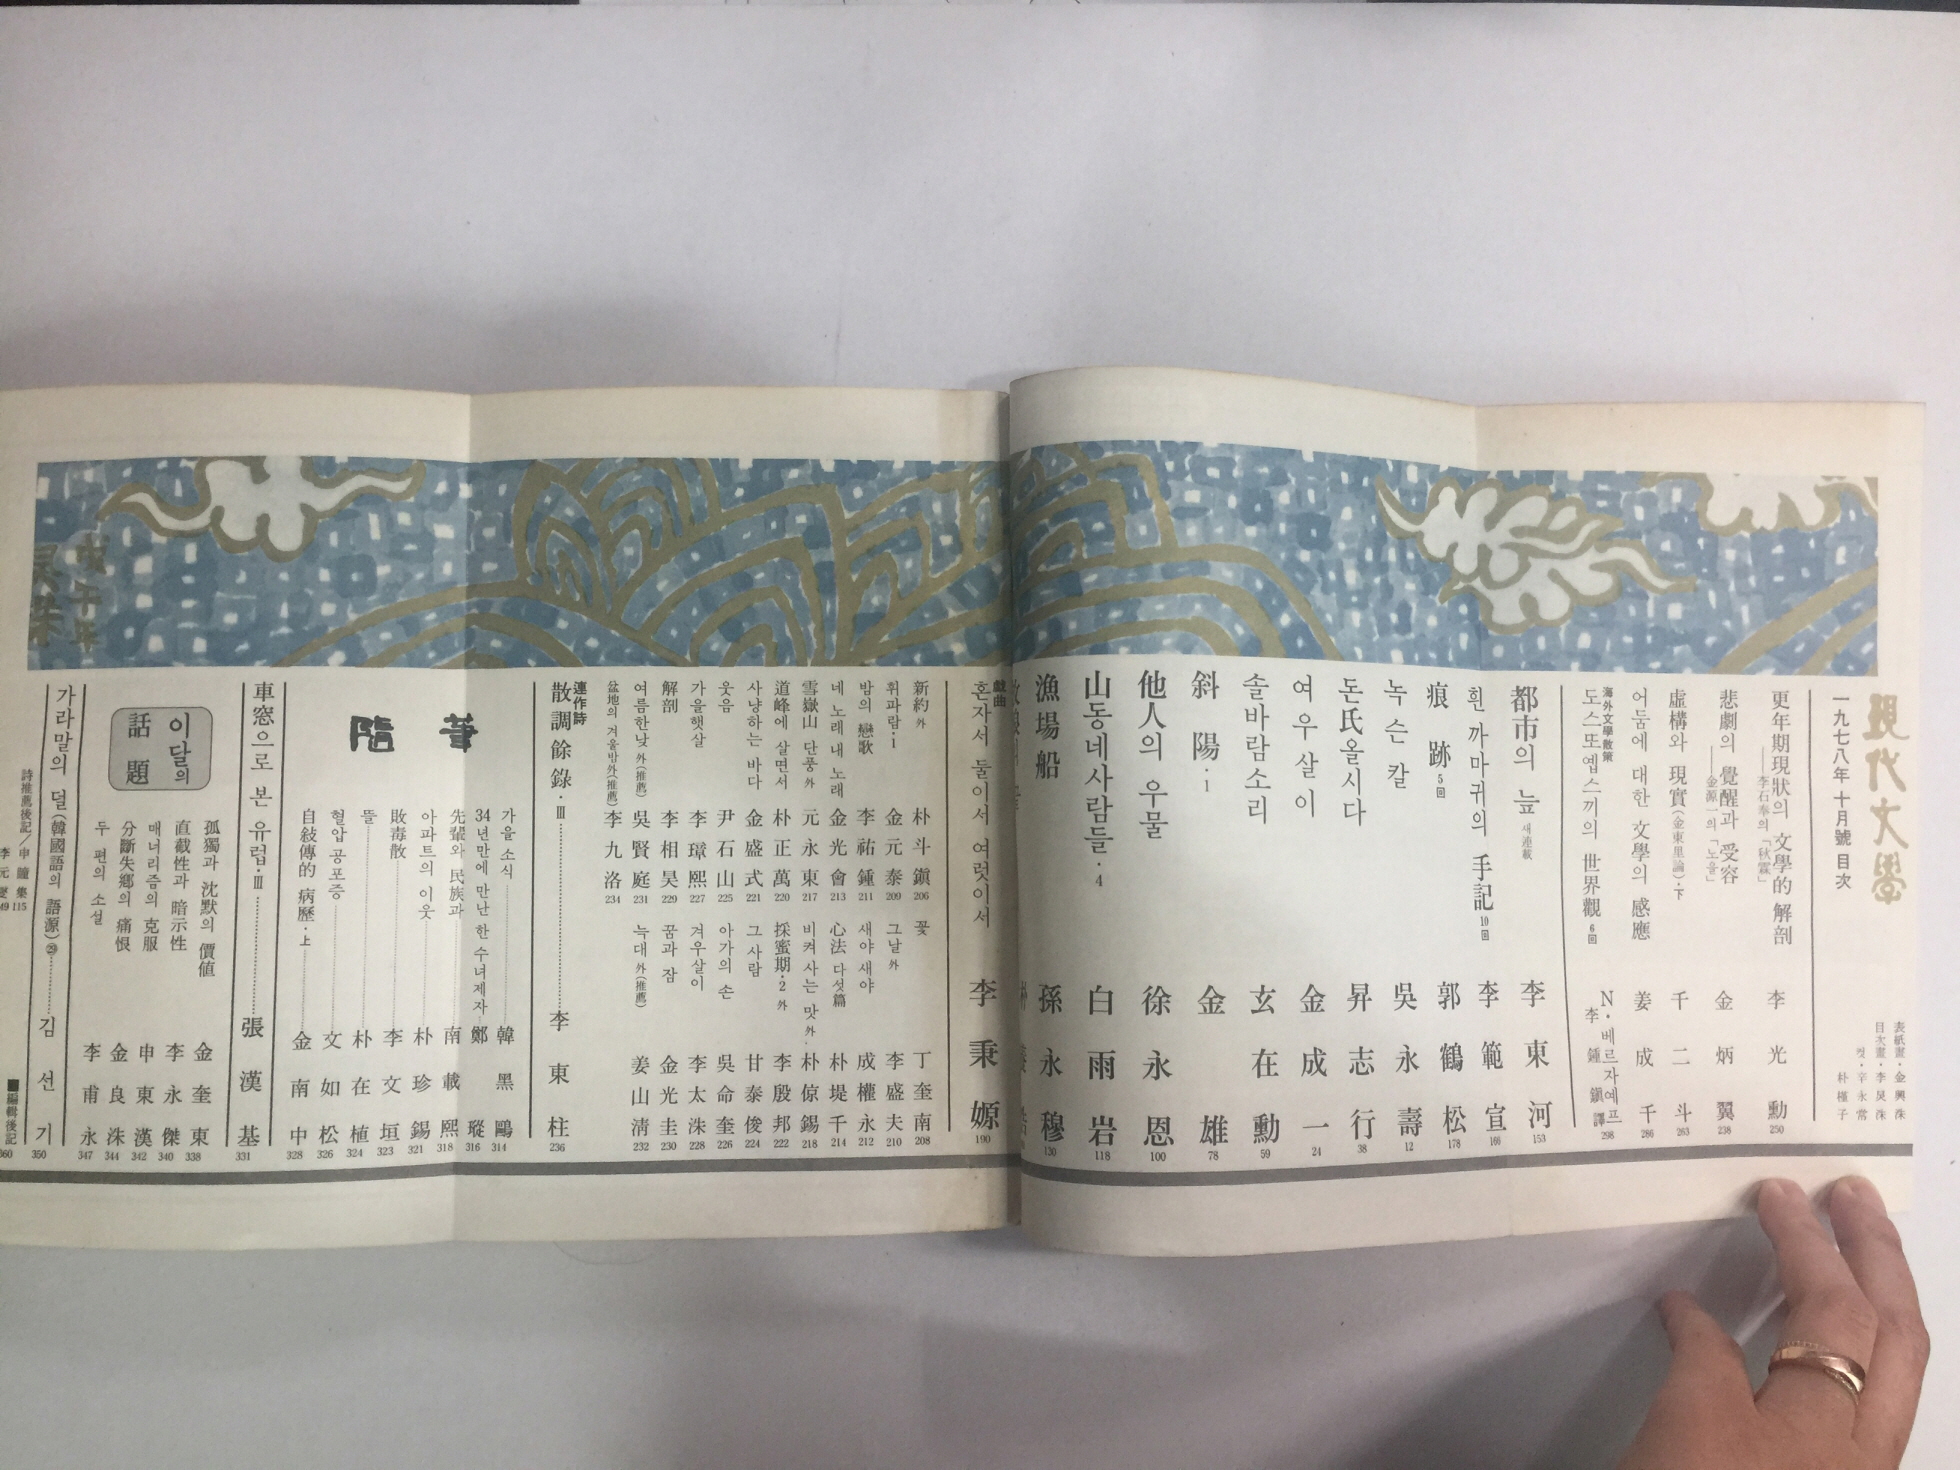 現代文學
一九七八年 十月號 目次
表紙畫·金興洙
目次畫·李昊洙
컷·辛永常
朴槿子
更年期現狀의 文學的 解剖
——李石奉의「秋霖」
李光勳 250
悲劇의 覺醒과 受容
——金源一의「노을」
金炳翼 238
虛構와 現實(金東里論)·下 千二斗 263
어둠에 대한 文學의 感應 姜成千 286
海外文學散策
도스또옙스끼의 世界觀 6回
N·베르자예프
李鍾鎭譯 298
都市의 늪 새連載 李東河 153
흰 까마귀의 手記 10回 李範宣 166
痕跡 5回 郭鶴松 178
녹슨 칼 吳永壽 12
돈氏올시다 昇志行 38
여우살이 金成一 24
솔바람소리 玄在勳 59
斜陽·1 金雄 78
他人의 우물 徐永恩 100
山동네사람들·4 白雨岩 118
漁場船 孫永穆 130
戲曲
혼자서 둘이서 여럿이서 李秉嫄 190
新約 外 朴斗鎭 206
꽃 丁奎南 208
휘파람·1 金元泰 209
그날 外 李盛夫 210
밤의 戀歌 李祐鍾 211
새야 새야 成權永 212
네 노래 내 노래 金光會 213
心法 다섯篇 朴堤千 214
雪嶽山 단풍 外 元永東 217
비켜 사는 맛 外 朴倞錫 218
道峰에 살면서 朴正萬 220
採蜜期·2 外 李殷邦 222
사냥하는 바다 金盛式 221
그 사람 甘泰俊 224
웃음 尹石山 225
아가의 손 吳命奎 226
가을햇살 李璋熙 227
겨우살이 李太洙 228
解剖 李相昊 229
꿈과 잠 金光圭 230
여름한낮 外(推薦) 吳賢庭 231
늑대 外(推薦) 姜山淸 232
盆地의 겨울밤外(推薦) 李九洛 234
連作詩
散調餘錄·Ⅲ 李東柱 236
隨筆
가을 소식 韓黑鷗 314
34년만에 만난 한 수녀제자 鄭瑽 316
先輩와 民族과 南載熙 318
아파트의 이웃 朴珍錫 321
敗毒散 李文垣 323
뜰 朴在植 324
혈압공포증 文如松 326
自敍傳的 病歷·上 金南中 328
車窓으로 본 유럽·Ⅲ 張漢基 331
이달의 話題
孤獨과 沈默의 價値 金奎東 338
直截性과 暗示性 李永傑 340
매너리즘의 克服 申東漢 342
分斷失鄕의 痛恨 金良洙 344
두 편의 소설 李甫永 347
가라말의 덜(韓國語의 語源)㉙ 김선기 350
詩推薦後記/申瞳集 115
■編輯後記 360
戊午年